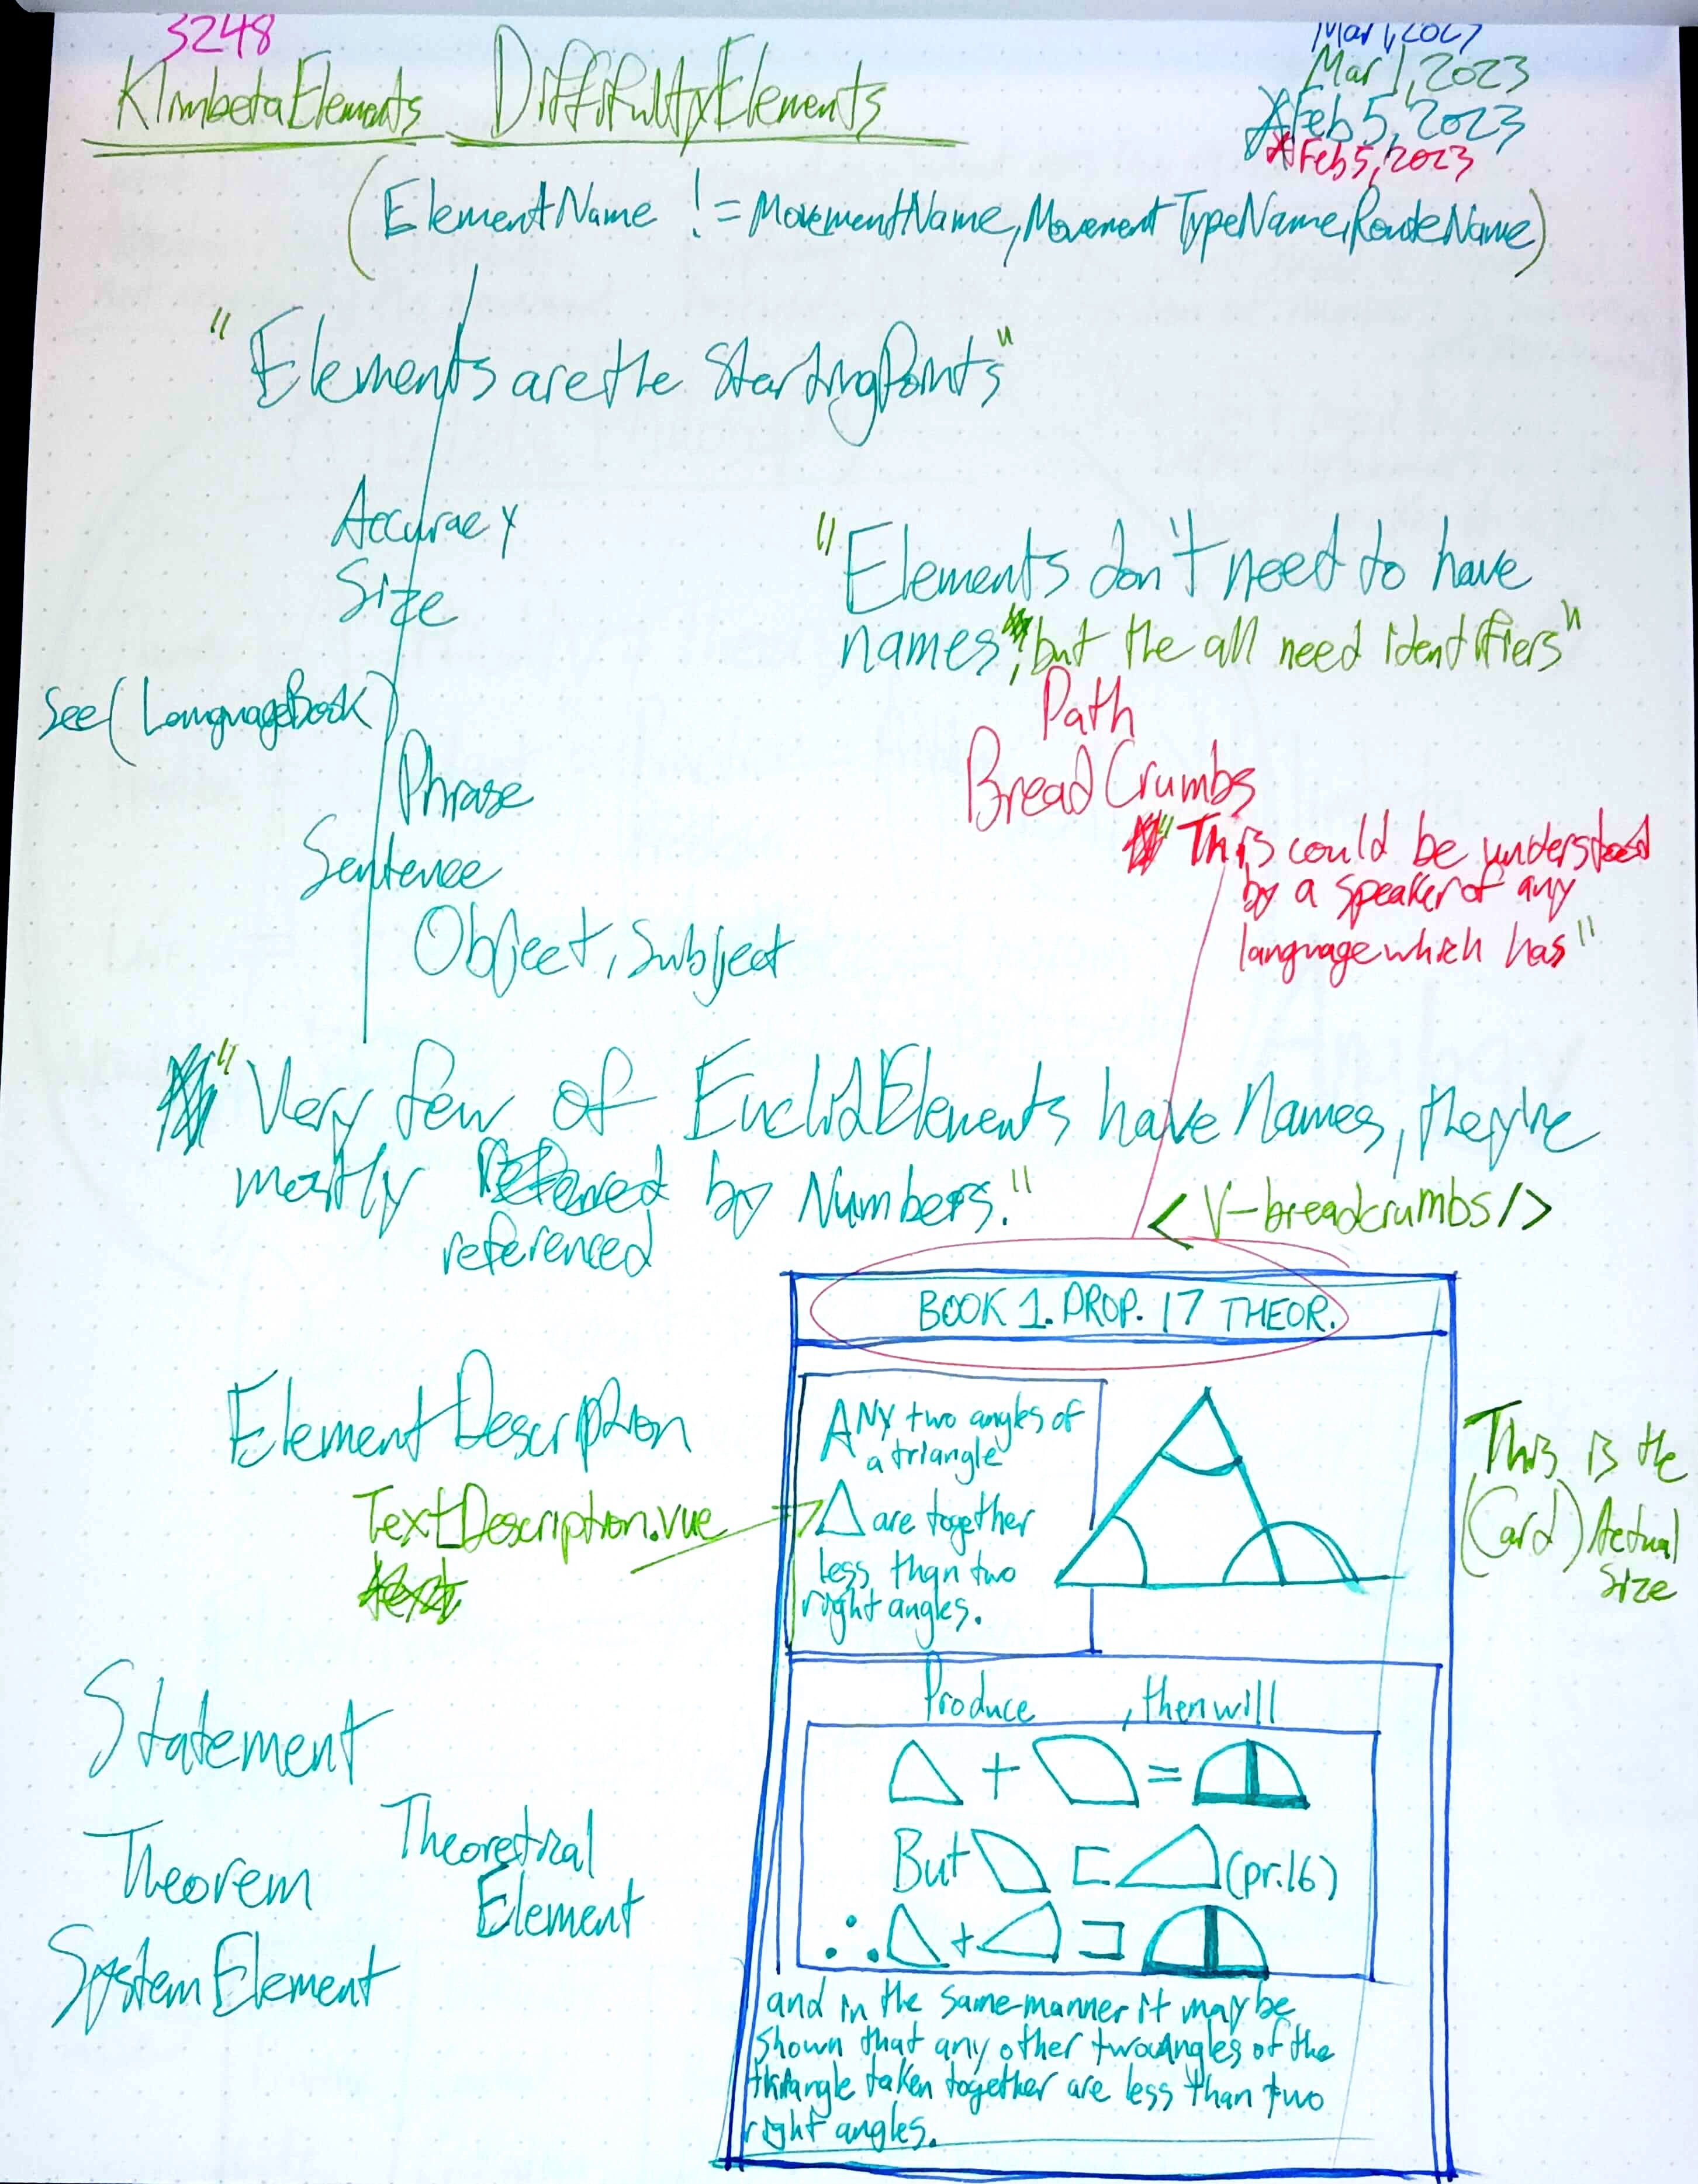 3248
Mar 1, 2023
Mar 1, 2023
KlimbetaElements DiffifultyElements
*Feb 5, 2023
*Feb 5, 2023
(ElementName != MovementName, MovementTypeName, RouteName)
"Elements are the StartingPoints"
Accuracy
Size
"Elements don't need to have
names", but the all need identifiers"
See(LanguageBook)
Path
BreadCrumbs
Phrase
"This could be understood
by a speaker of any
language which has"
Sentence
Object, Subject
"Very few of EuclidElements have Names, they're
mostly by Numbers."
referenced
<V-breadcrumbs/>
BOOK 1. PROP. 17 THEOR.
ElementDescription
TextDescription.vue
text
ANY two angles of
a triangle
are together
less than two
right angles.
This is the
(Card) Actual
Size
Produce , then will
+ =
But ⊏ (pr.16)
∴ + ⊐
and in the same manner it may be
shown that any other two angles of the
triangle taken together are less than two
right angles.
Statement
Theorem
Theoretical
Element
SystemElement